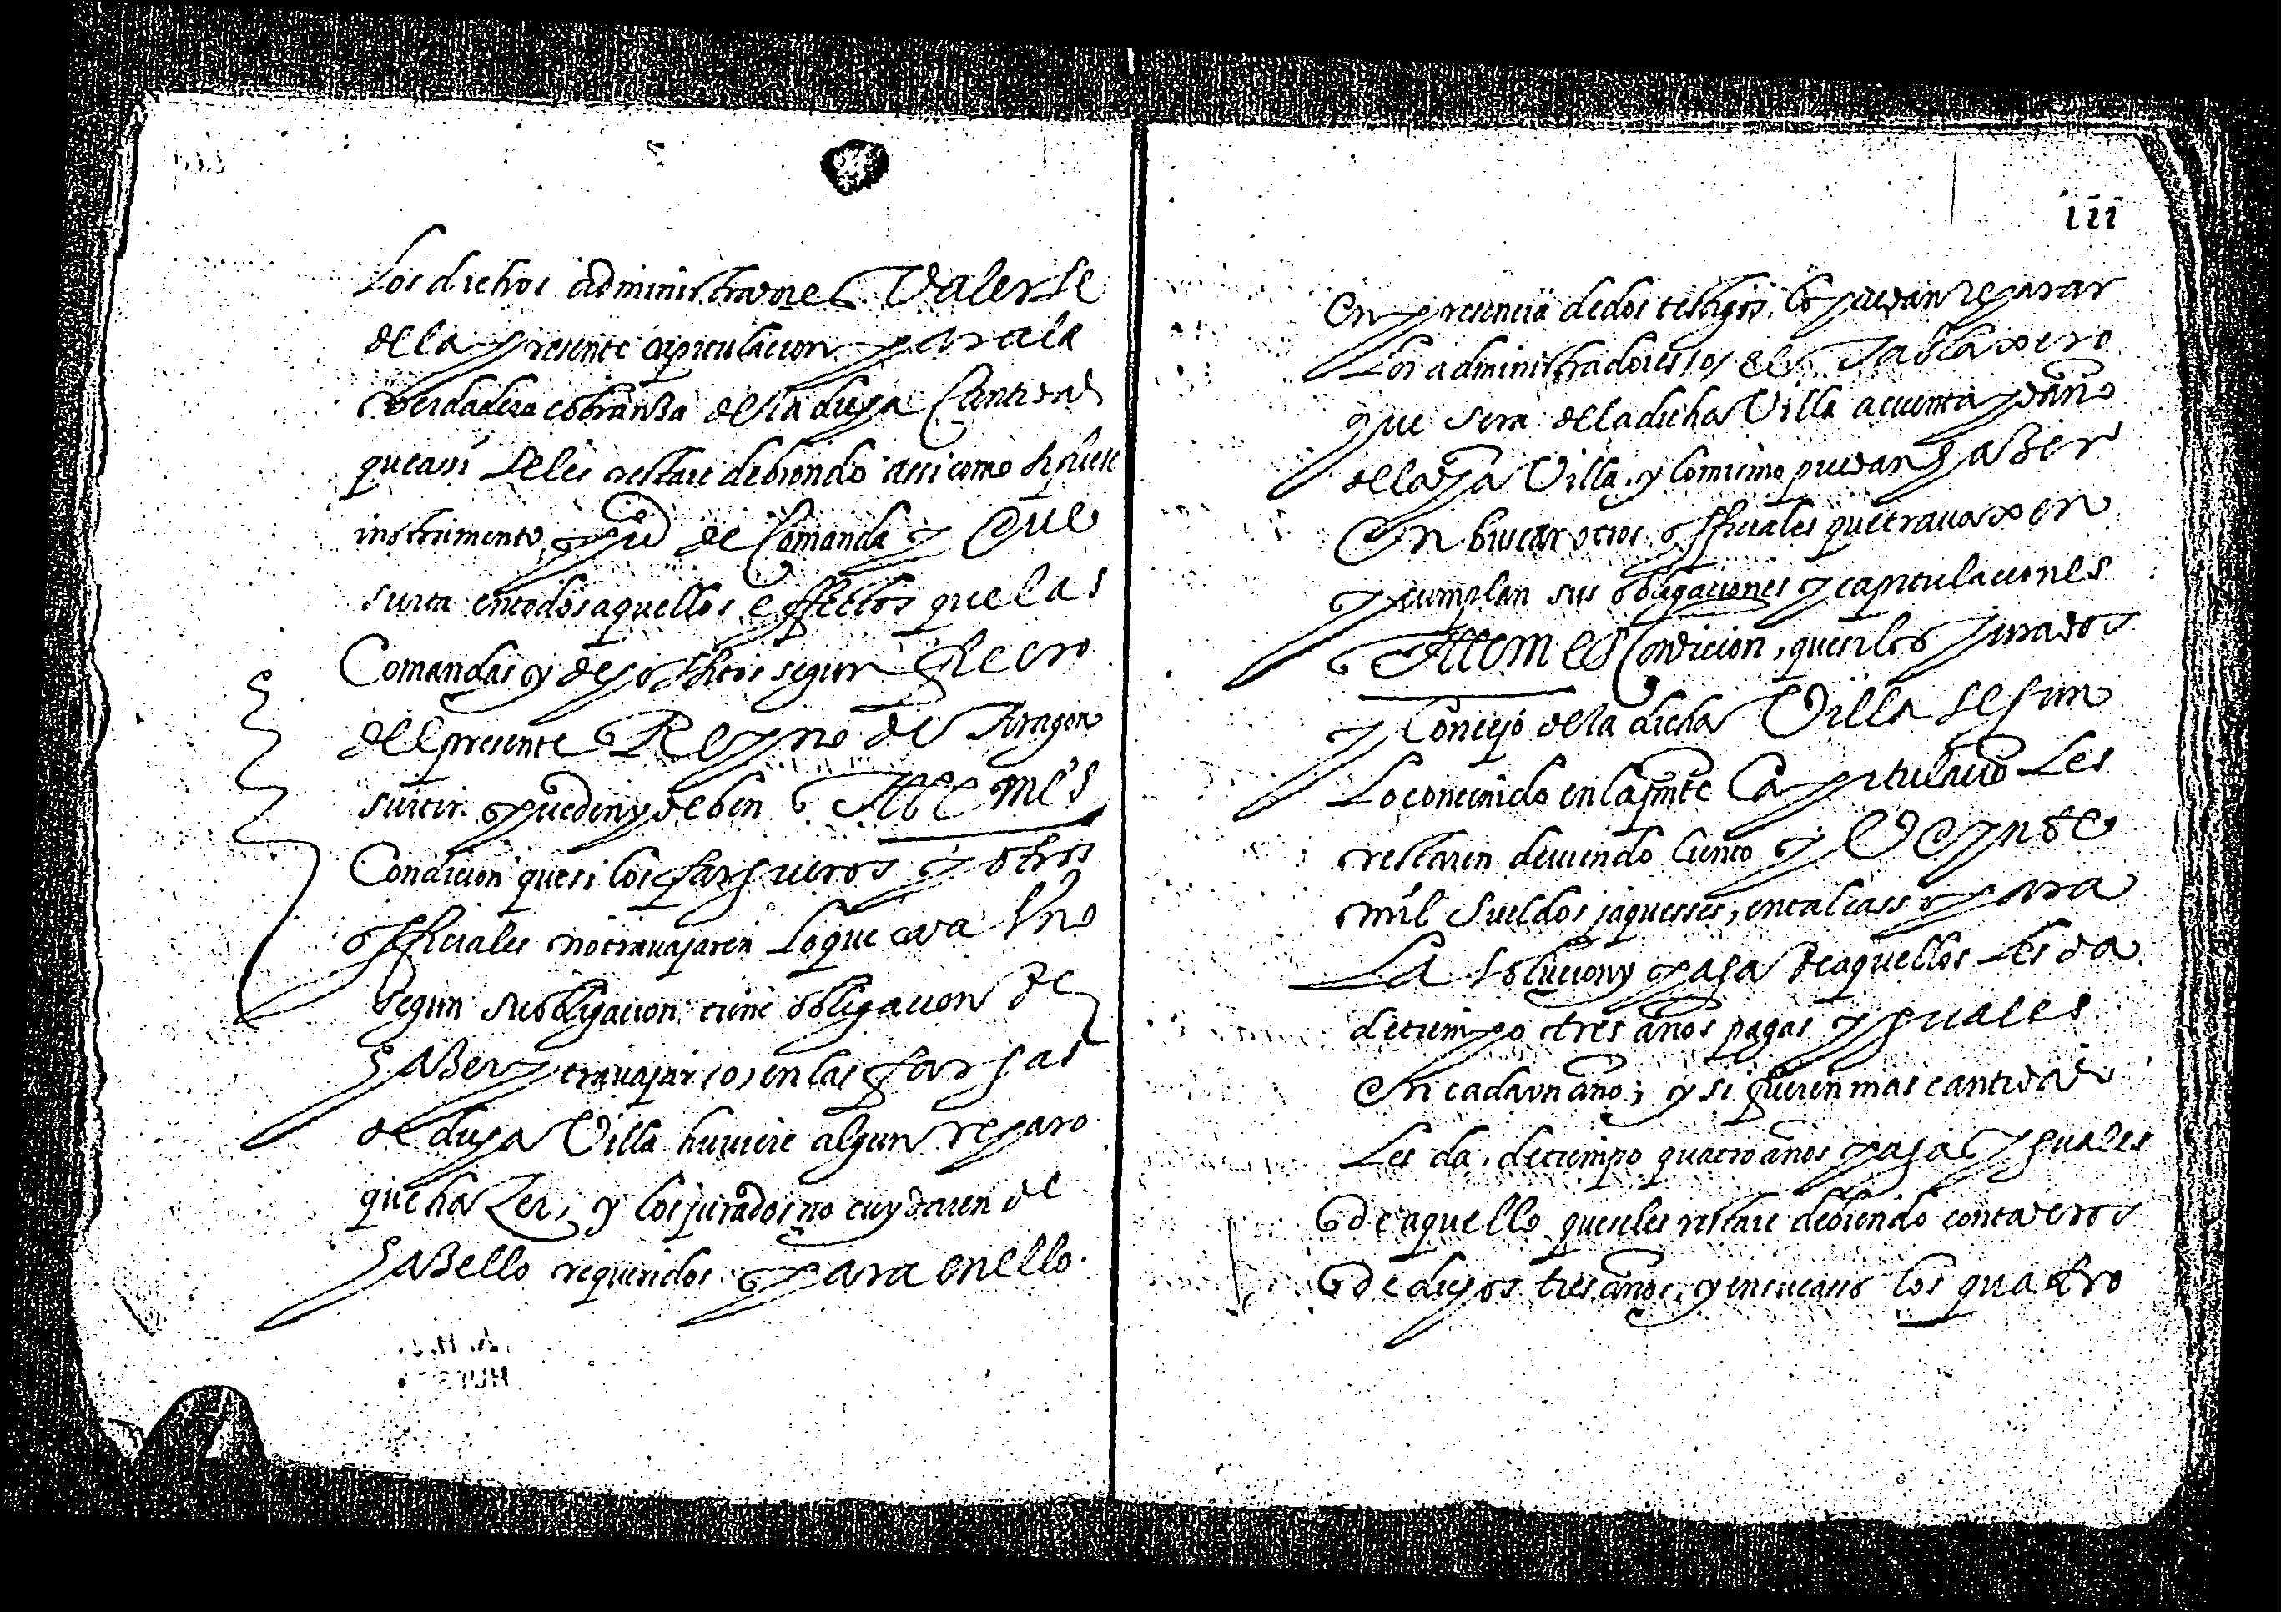 Los dichos administradores Valerse
de la presente capitulacion para la
berdadera cobranza de la dicha Cantidad
que assi se les restare debiendo assi como si fuese
instrumento pu^co de Comanda y Que
surta en todos aquellos effectos que las
Comandas y depositos segun fuero
del presente Reyno de Aragon
surtir pueden y deben Ittem es
Condicion que si los fargueros y otros
officiales no travajaren lo que cada Uno
segun su obligacion tiene obligacion de
hazer y travajar (o) en las fargas
de dicha Villa huviere algun reparo
que hazer, y los jurados no cuydaren de
hazello requeridos para en ello.
iii
En presencia de dos testigos lo puedan reparar
Los administradores (o) el
que sera de la dicha Villa a cuenta y daño
de la dha Villa, y lo mismo puedan hazer
En buscar otros officiales que travaxen
y cumplan sus obligaciones y capitulaciones
Ittem es Condicion, que si los jurados
y Concejo de la dicha Villa segun
Lo contenido en la pnte Capitulacio Les
restaren deviendo Ciento y Veynte
mil sueldos jaquesses, en tal casso para
La solucion y paga de aquellos Les da
de tiempo tres años pagas yguales
En cada un año; y si fueren mas cantidad
Les da de tiempo quatro años pagas yguales
de aquello que se les restare debiendo contaderos
de dichos tres años, y en su casso los quatro